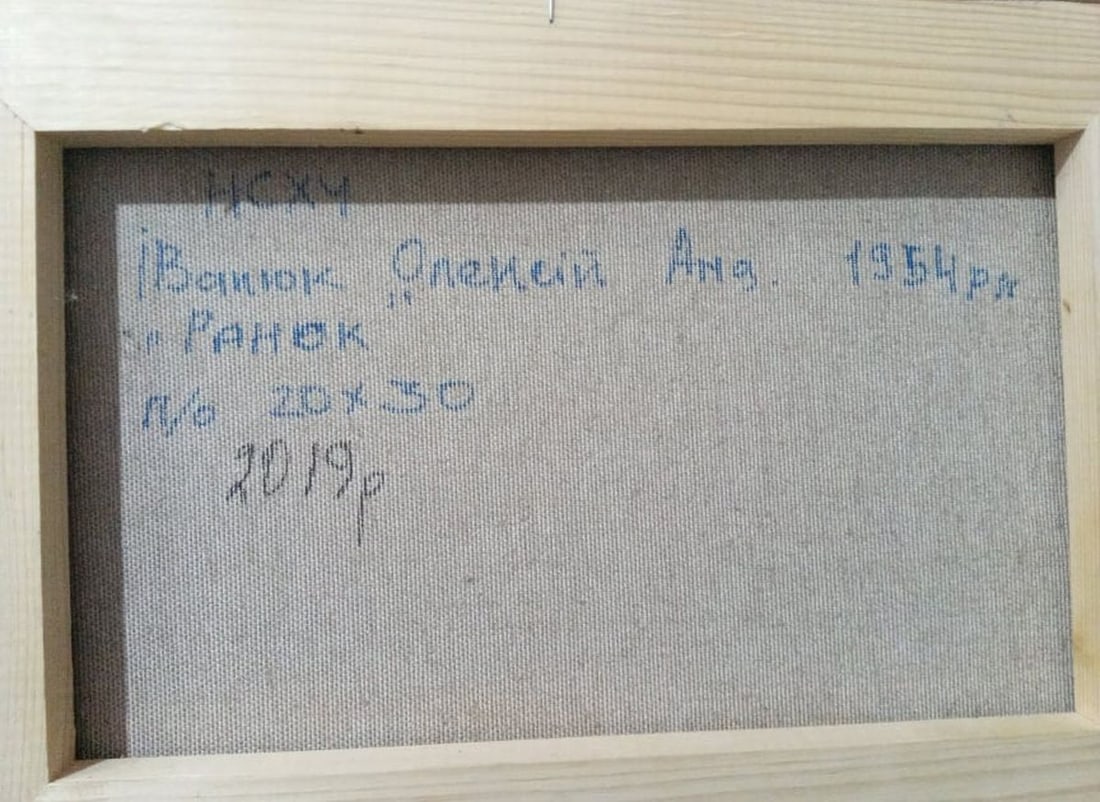 НСХУ
Іванюк Олексій Анд. 1954 р н
"Ранок
п/о 20х30
2019р